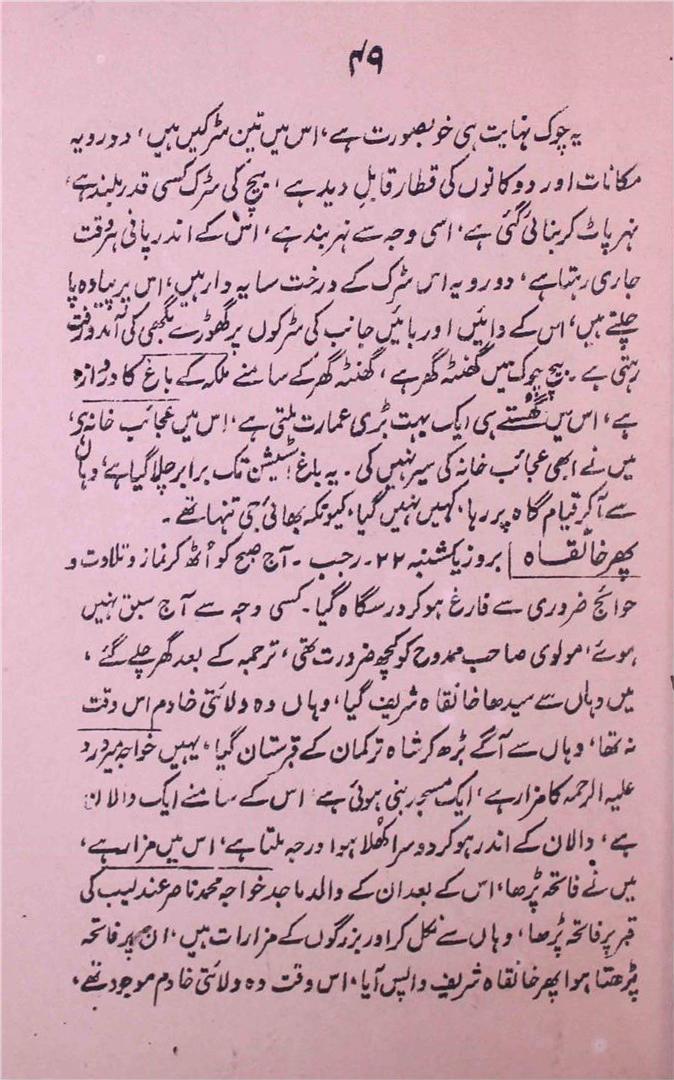 ۴۹
یہ چوک نہایت ہی خوبصورت ہے، اس میں تین سڑکیں ہیں، دورویہ
مکانات اور دوکانوں کی قطار قابلِ دید ہے، بیچ کی سڑک کسی قدر بلند ہے،
نہر پاٹ کر بنائی گئی ہے، اسی وجہ سے نہر بند ہے، اس کے اندر پانی ہر وقت
جاری رہتا ہے، دورویہ اس سڑک کے درخت سایہ دار ہیں، اس پر پیادہ پا
چلتے ہیں، اس کے دائیں اور بائیں جانب کی سڑکوں پر گھوڑے بگھی کی آمد و رفت
رہتی ہے۔ بیچ چوک میں گھنٹہ گھر ہے، گھنٹہ گھر کے سامنے ملکہ کے باغ کا دروازہ
ہے، اس میں گھستے ہی ایک بہت بڑی عمارت ملتی ہے، اس میں عجائب خانہ ہے،
میں نے ابھی عجائب خانہ کی سیر نہیں کی۔ یہ باغ اسٹیشن تک برابر چلا گیا ہے، وہاں
سے آکر قیام گاہ پر رہا، کہیں نہیں گیا، کیونکہ بھائی جی تنہا تھے۔
پھر خانقاہ | بروز یکشنبہ ۲۲۔ رجب۔ آج صبح کو اُٹھ کر نماز و تلاوت و
حوائج ضروری سے فارغ ہو کر درسگاہ گیا۔ کسی وجہ سے آج سبق نہیں
ہوئے، مولوی صاحب ممدوح کو کچھ ضرورت تھی، ترجمہ کے بعد گھر چلے گئے،
میں وہاں سے سیدھا خانقاہ شریف گیا، وہاں وہ ولائتی خادم اس وقت
نہ تھا، وہاں سے آگے بڑھ کر شاہ ترکمان کے قبرستان گیا، یہیں خواجہ میر درد
علیہ الرحمہ کا مزار ہے، ایک مسجد بنی ہوئی ہے اس کے سامنے ایک دالان
ہے، دالان کے اندر ہو کر دوسرا کُھلا ہوا درجہ ملتا ہے، اس میں مزار ہے،
میں نے فاتحہ پڑھا، اس کے بعد ان کے والد ماجد خواجہ محمد ناصر عندلیب کی
قبر پر فاتحہ پڑھا، وہاں سے نکل کر اور بزرگوں کے مزارات ہیں، ان پر فاتحہ
پڑھتا ہوا پھر خانقاہ شریف واپس آیا، اس وقت وہ ولائتی خادم موجود تھے،